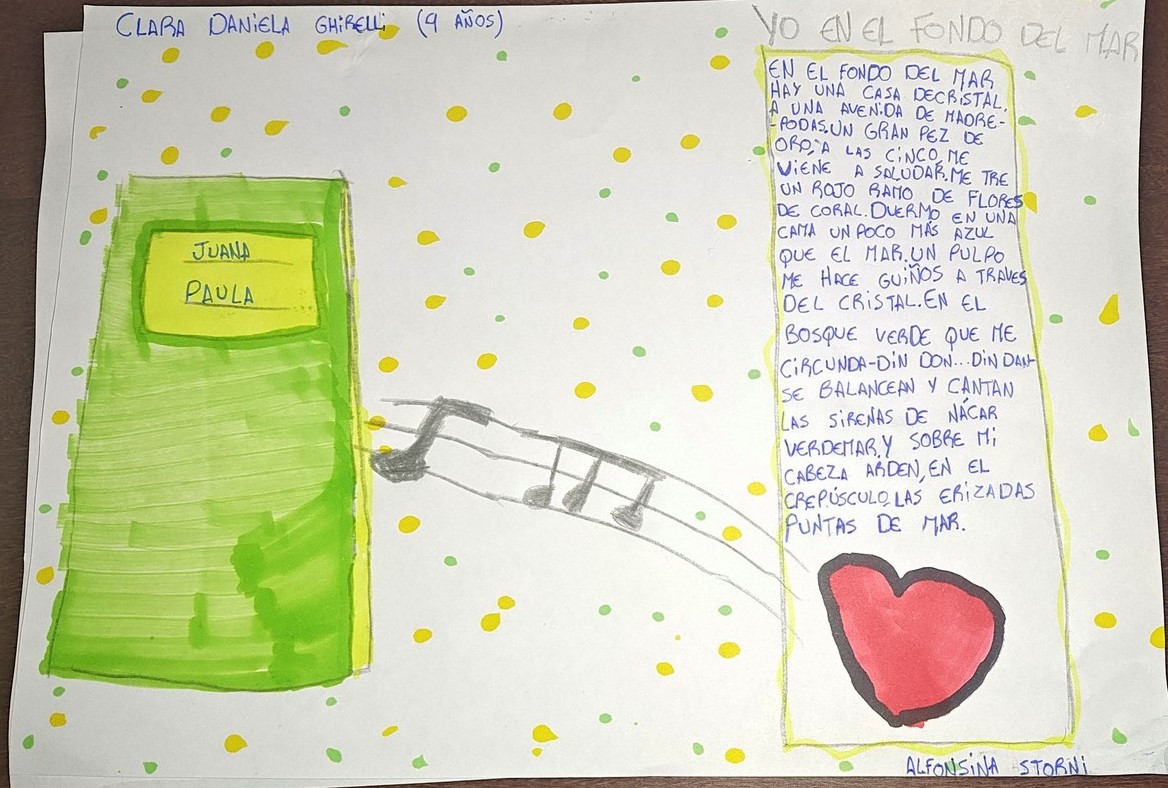 CLARA DANIELA GHIRELLI (9 AÑOS)
YO EN EL FONDO DEL MAR
EN EL FONDO DEL MAR
HAY UNA CASA DECRISTAL.
A UNA AVENIDA DE MADRE-
-PODAS,UN GRAN PEZ DE
ORO, A LAS CINCO, ME
VIENE A SALUDAR.ME TRE
UN ROJO RAMO DE FLORES
DE CORAL.DUERMO EN UNA
CAMA UN POCO MÁS AZUL
QUE EL MAR.UN PULPO
ME HACE GUIÑOS A TRAVES
DEL CRISTAL.EN EL
BOSQUE VERDE QUE ME
CIRCUNDA-DIN DON...DIN DAN-
SE BALANCEAN Y CANTAN
LAS SIRENAS DE NÁCAR
VERDEMAR.Y SOBRE MI
CABEZA ARDEN,EN EL
CREPÚSCULO,LAS ERIZADAS
PUNTAS DE MAR.
ALFONSINA STORNI
JUANA
PAULA